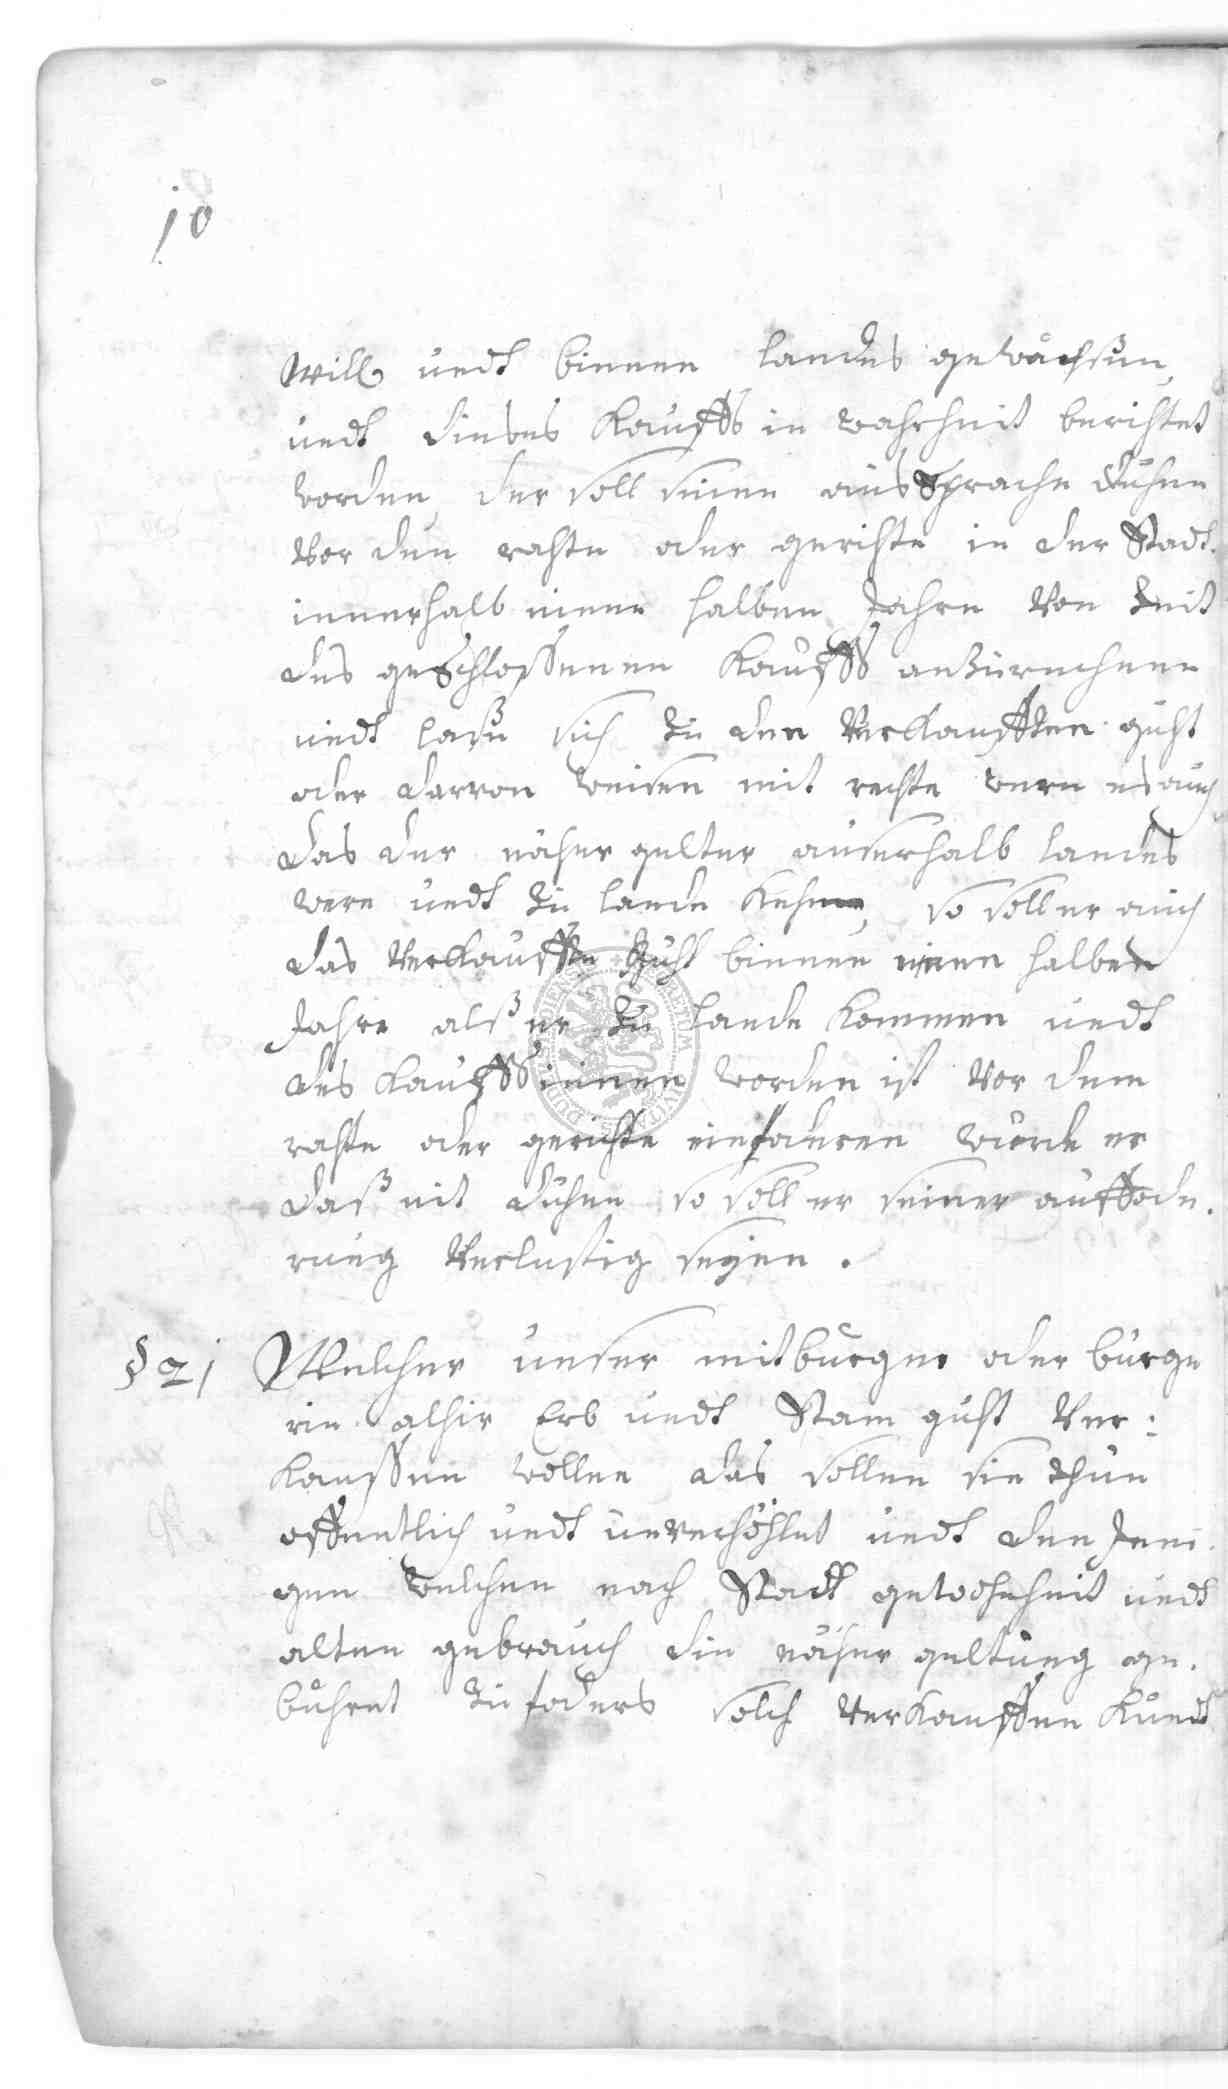 10
Will undt binnen landes gewachsen,
undt dieses Kauffs in wahrheit berichtet
worden, der soll seinen aussprache duhen
vor den rahte oder gerichte in der Stadt.
innerhalb einen halben Jahre von Zeit
des geschlossenen Kauffs anzurechnen
undt lasse sich zu den verkaufften guht
oder darvon weisen mit rechte were es auch
das der näher gelter auserhalb landes
were undt zu lande kehme, so soll er auch
das verkauffte guht binnen einen halben
Jahre alß er zu lande kommen undt
des Kauffs innen worden ist vor dem
rahte oder gerichte einfoderen würde er
daß nit duhen so soll er seiner auffode.
rung verlustig seyen.
§ 21 Welcher unser mitburger oder burge
rin alhir Erb undt Stam guht ver:
kauffen wollen das sollen sie thun
offentlich undt unverhöhlet undt den Jeni.
gen welchen nach Stadt gewohnheit undt
alten gebrauch die näher geltung ge.
buhret zu foders solch verkauffen kundt